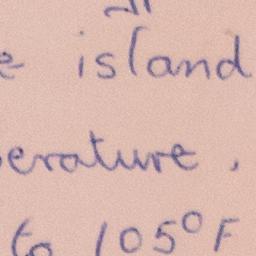 island
erature.
to 105°F